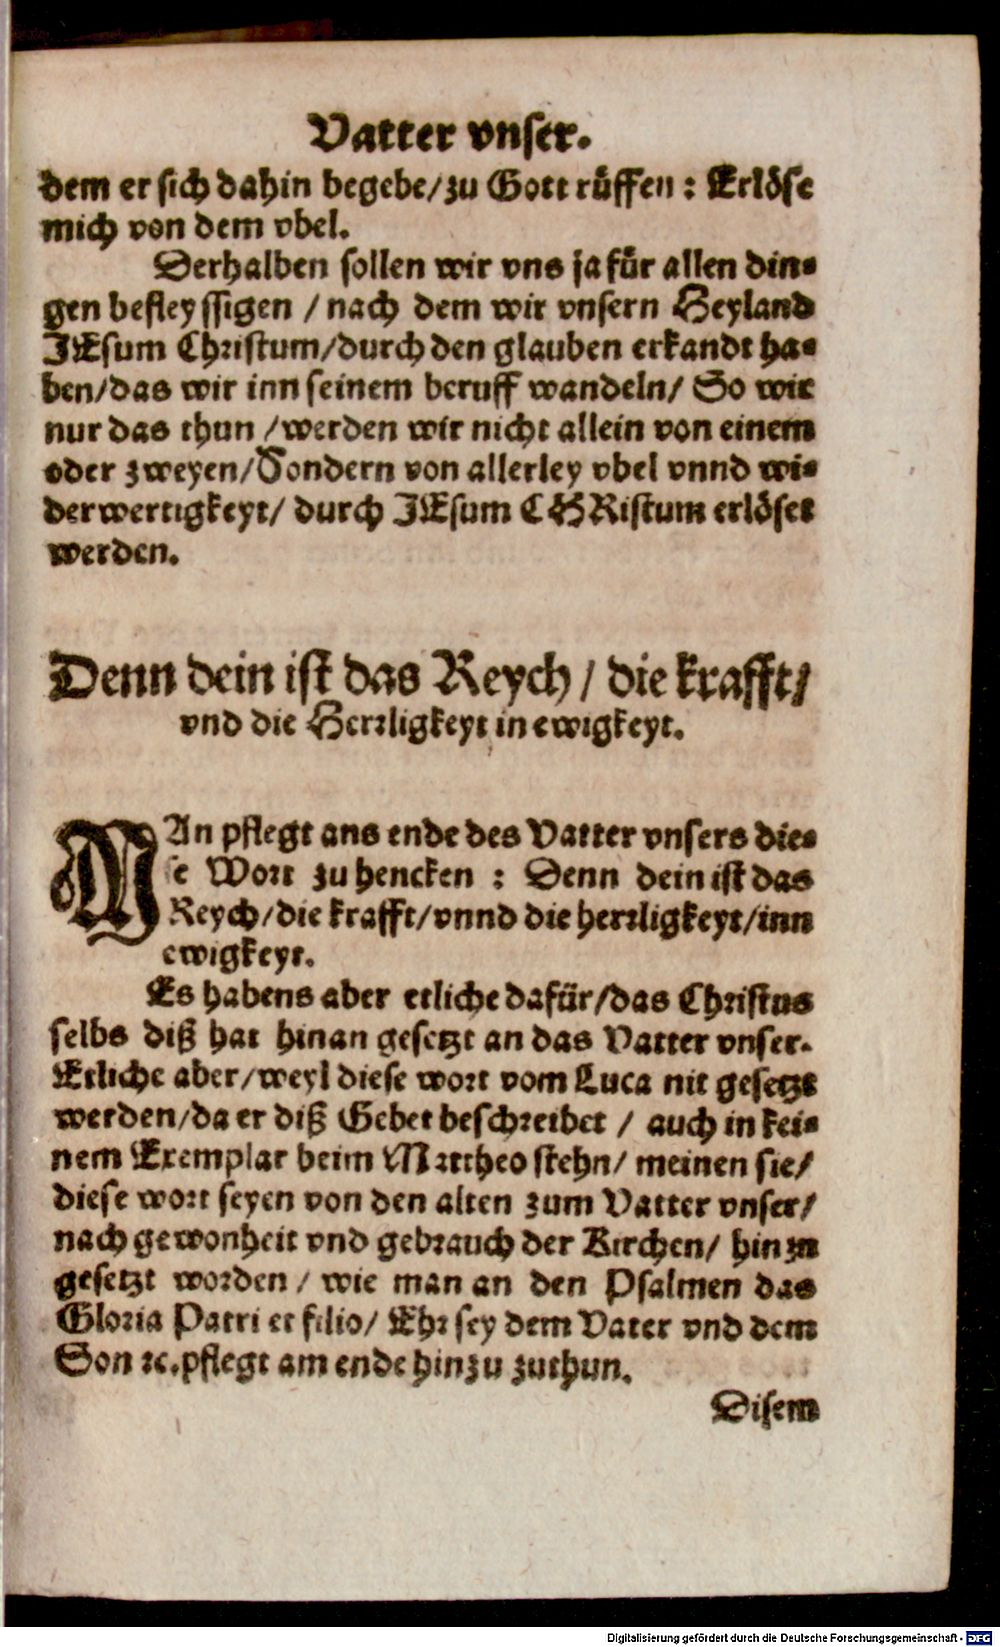 Vatter vnser.
dem er sich dahin begebe/zu Gott rüffen: Erlöse
mich von dem vbel.
Derhalben sollen wir vns ja für allen din-
gen befleyssigen / nach dem wir vnsern Heyland
JEsum Christum/durch den glauben erkandt ha-
ben/das wir inn seinem beruff wandeln/ So wir
nur das thun /werden wir nicht allein von einem
oder zweyen/Sondern von allerley vbel vnnd wi-
derwertigkeyt/ durch JEsum CHRistum erlöset
werden.
Denn dein ist das Reych/ die krafft/
vnd die Herrligkeyt in ewigkeyt.
MAn pflegt ans ende des Vatter vnsers die-
se Wort zu hencken : Denn dein ist das
Reych/die krafft/vnnd die herrligkeyt/inn
ewigkeyt.
Es habens aber etliche dafür/das Christus
selbs diß hat hinan gesetzt an das Vatter vnser.
Etliche aber/weyl diese wort vom Luca nit gesetzt
werden/da er diß Gebet beschreibet / auch in kei-
nem Exemplar beim Mattheo stehn/ meinen sie/
diese wort seyen von den alten zum Vatter vnser/
nach gewonheit vnd gebrauch der Kirchen/ hin zu
gesetzt worden / wie man an den Psalmen das
Gloria Patri et filio/ Ehr sey dem Vater vnd dem
Son ꝛc.pflegt am ende hinzu zuthun.
Disem
Digitalisierung gefördert durch die Deutsche Forschungsgemeinschaft - DFG